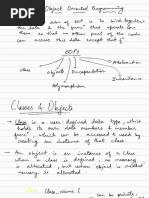 Object Oriented Programming
→ The main aim of OOP is to bind together
the data & the funcⁿ that operate on
them so that no other part of the code
can access this data except that fⁿ
OOPs
Class
Objects
Encapsulation
Abstraction
Inheritance
Polymorphism
Classes & Objects
→ Class is a user-defined data type which
holds its own data members & member
funcⁿ, which can be accessed & used by
creating an instance of that class
→ An object is an instance of a class
when a class is defined, no memory
is allocated, but when object initiated,
memory is allocated
class Class_Name {
can be private,